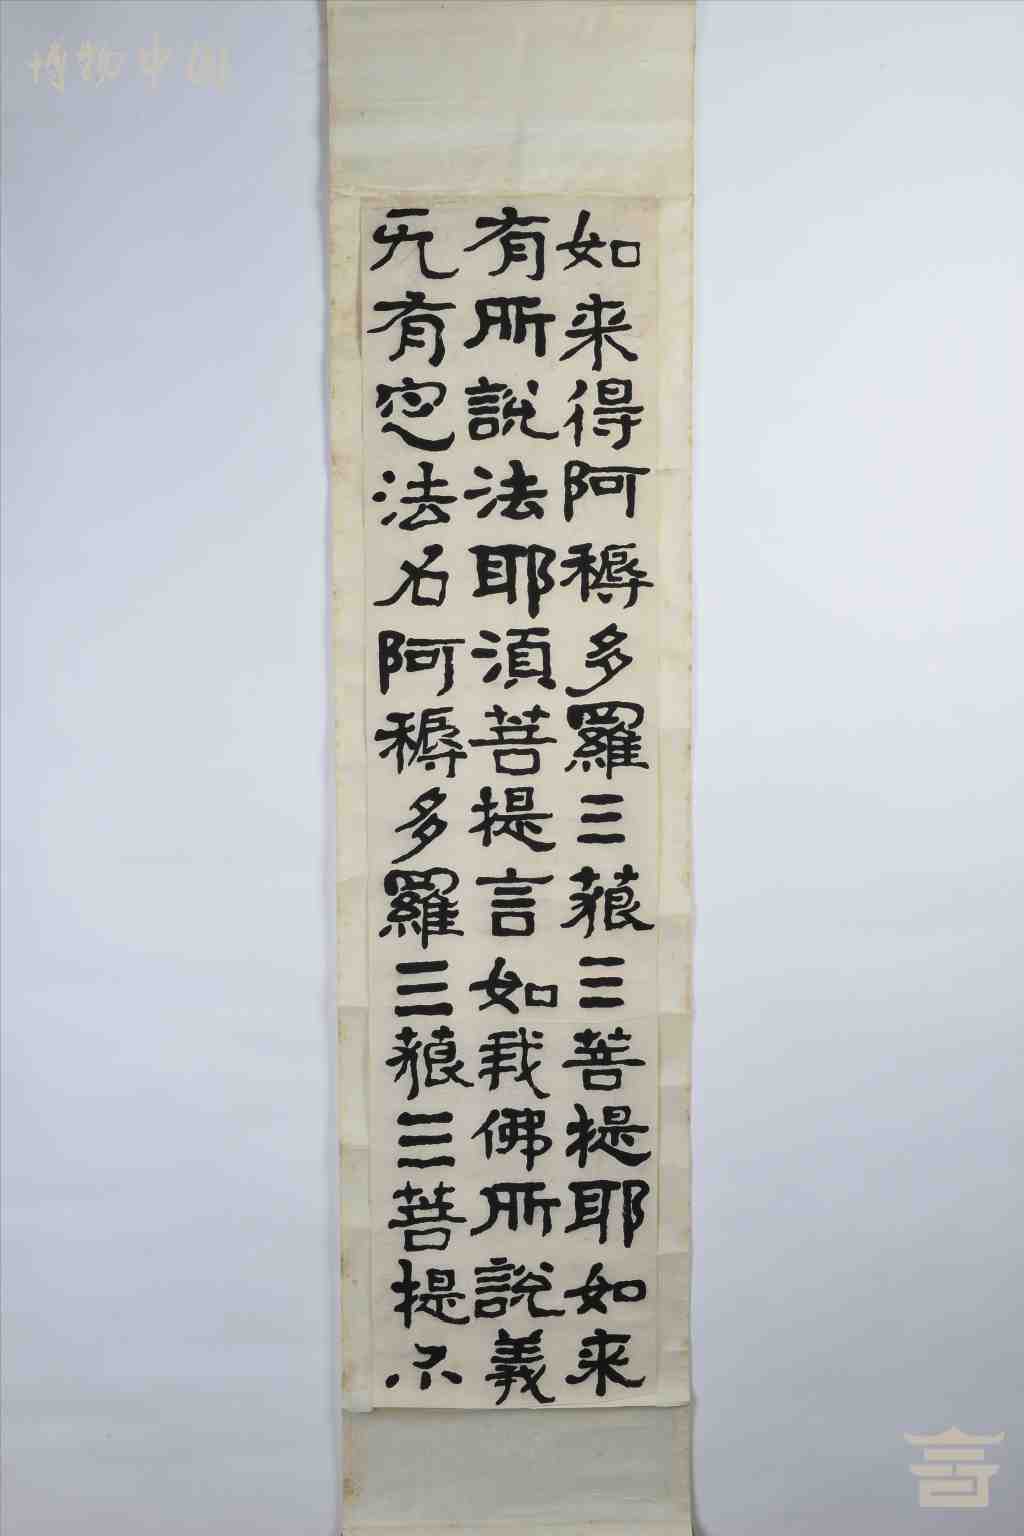 如来得阿耨多羅三藐三菩提耶如来
有所說法耶須菩提言如我佛所說義
无有定法名阿耨多羅三藐三菩提亦
博物中国